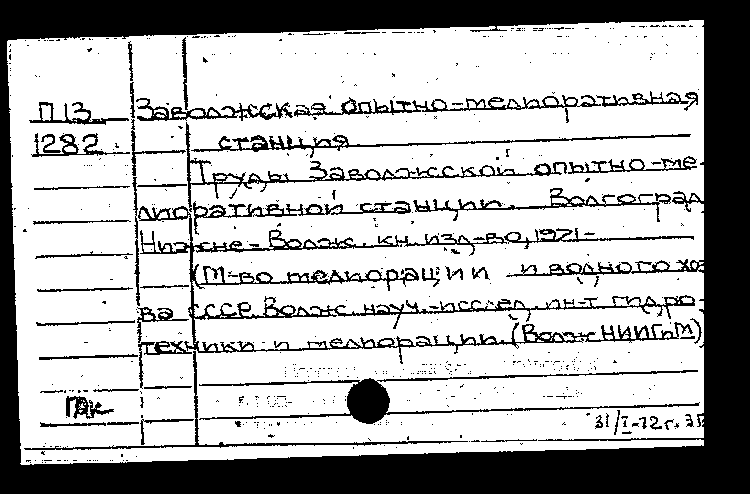 П13 Заволжская опытно-мелиоративная
1282 станция.
Труды Заволжской опытно-ме-
лиоративной станции. Волгоград
Нижне-Волж. кн. изд-во, 1971-
(М-во мелиорации и водного хоз
ва СССР. Волж. науч.-исслед. ин-т гидро-
техники и мелиорации. (ВолжНИИГиМ)
31/I-72г.